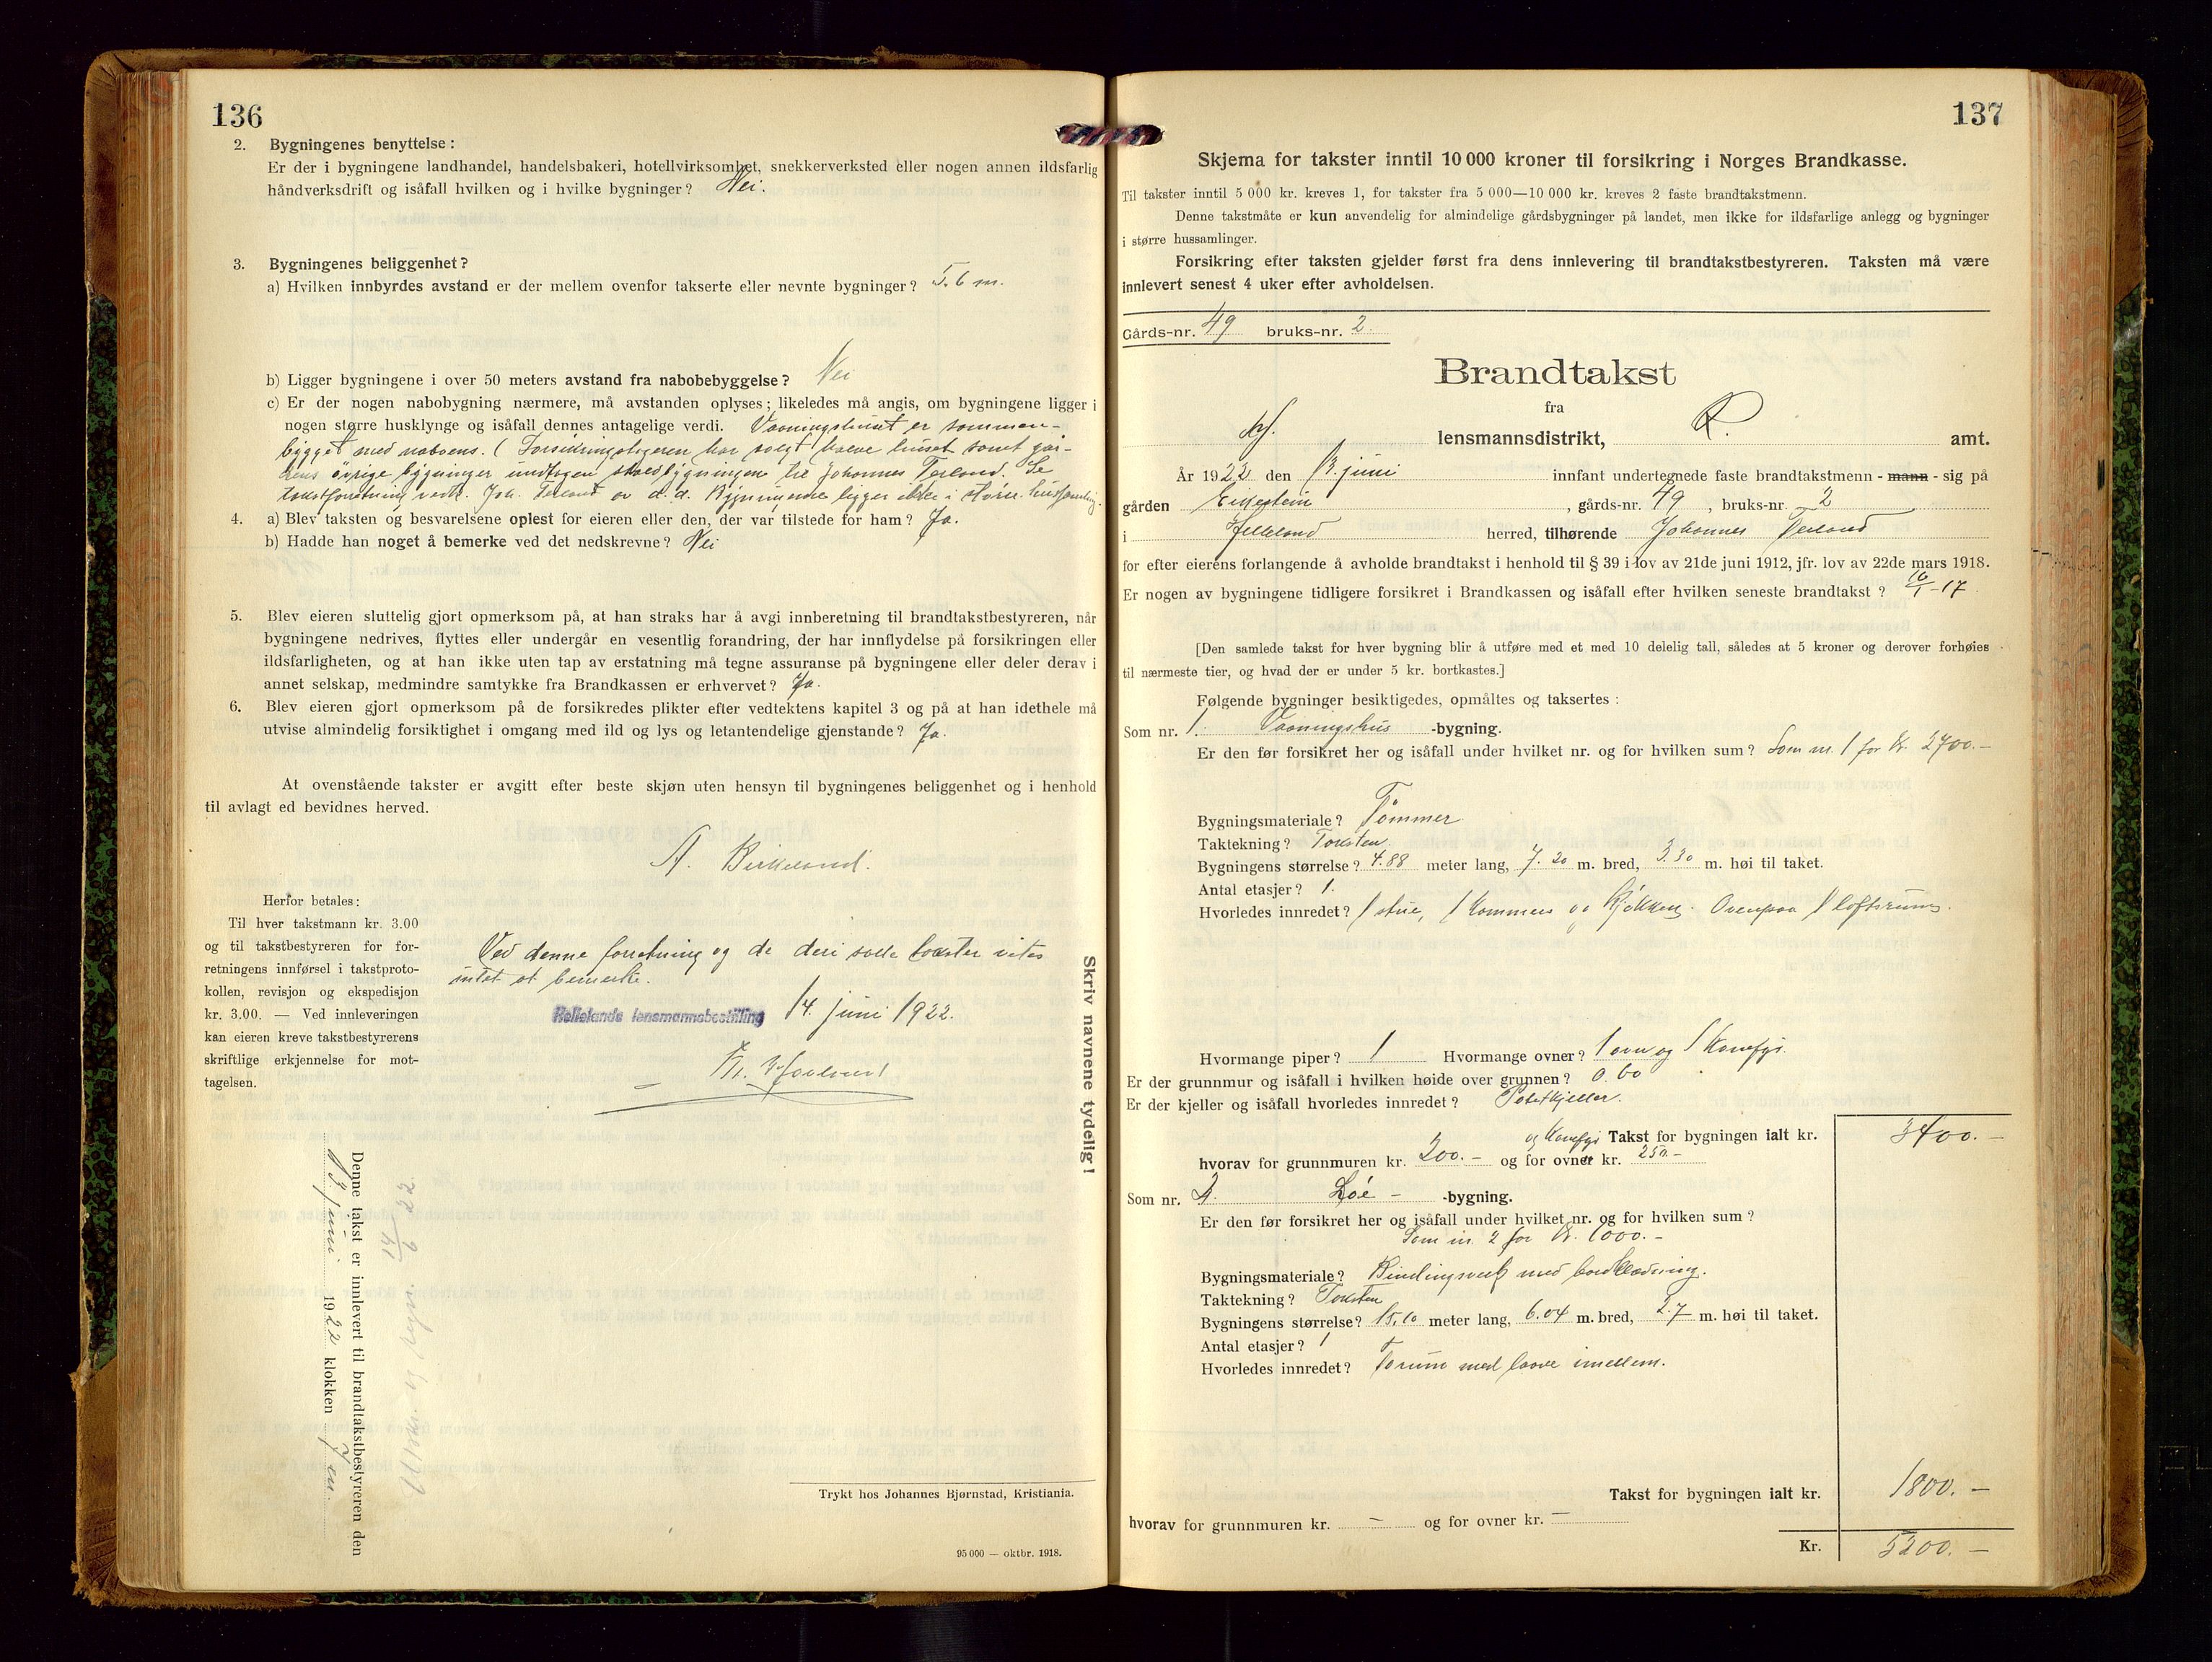 136
2. Bygningenes benyttelse :
Er der i bygningene landhandel, handelsbakeri, hotellvirksomhet, snekkerverksted eller nogen annen ildsfarlig
håndverksdrift og isåfall hvilken og i hvilke bygninger? Nei.
3. Bygningenes beliggenhet ?
a) Hvilken innbyrdes avstand er der mellem ovenfor takserte eller nevnte bygninger ? 5.6 m.
b) Ligger bygningene i over 50 meters avstand fra nabobebyggelse ? Nei
c) Er der nogen nabobygning nærmere, må avstanden oplyses ; likeledes må angis, om bygningene ligger i
nogen større husklynge og isåfall dennes antagelige verdi. Vaaningshuset er sammen-
bygget med naboens. ( Forsikringstageren har solgt halve huset samt gaar-
dens øvrige bygninger undtagen til Johannes Terland. Se
takstforretning vedk. Joh. Terland av d.d. Bygningerne ligger ikke i større hussamling.
4. a) Blev taksten og besvarelsene oplest for eieren eller den, der var tilstede for ham ? Ja.
b) Hadde han noget å bemerke ved det nedskrevne ? Nei
5. Blev eieren sluttelig gjort opmerksom på, at han straks har å avgi innberetning til brandtakstbestyreren, når
bygningene nedrives, flyttes eller undergår en vesentlig forandring, der har innflydelse på forsikringen eller
ildsfarligheten, og at han ikke uten tap av erstatning må tegne assuranse på bygningene eller deler derav i
annet selskap, medmindre samtykke fra Brandkassen er erhvervet ? Ja.
6. Blev eieren gjort opmerksom på de forsikredes plikter efter vedtektens kapitel 3 og på at han idethele må
utvise almindelig forsiktighet i omgang med ild og lys og letantendelige gjenstande ? Ja.
At ovenstående takster er avgitt efter beste skjøn uten hensyn til bygningenes beliggenhet og i henhold
til avlagt ed bevidnes herved.
A. Birkeland.
Herfor betales :
Til hver takstmann kr. 3.00
og til takstbestyreren for for-
retningens innførsel i takstproto-
kollen, revisjon og ekspedisjon
kr. 3.00. — Ved innleveringen
kan eieren kreve takstbestyrerens
skriftlige erkjennelse for mot-
tagelsen.
Ved denne forretning og de deri satte takster vites
intet at bemerke.
Hellelands lensmannsbestilling 14. juni 1922.
Skriv navnene tydelig!
Denne takst er innlevert til brandtakstbestyreren den
13 juni 1922 klokken 7 em.
14/6 22
Trykt hos Johannes Bjørnstad, Kristiania.
95 000 — oktbr. 1918.
137
Skjema for takster inntil 10 000 kroner til forsikring i Norges Brandkasse.
Til takster inntil 5 000 kr. kreves 1, for takster fra 5 000—10 000 kr. kreves 2 faste brandtakstmenn.
Denne takstmåte er kun anvendelig for almindelige gårdsbygninger på landet, men ikke for ildsfarlige anlegg og bygninger
i større hussamlinger.
Forsikring efter taksten gjelder først fra dens innlevering til brandtakstbestyreren. Taksten må være
innlevert senest 4 uker efter avholdelsen.
Gårds-nr. 49 bruks-nr. 2.
Brandtakst
fra
lensmannsdistrikt, R. amt.
År 1922 den 13. juni innfant undertegnede faste brandtakstmenn - mann - sig på
gården Eikestein , gårds-nr. 49 , bruks-nr. 2
i Helleland herred, tilhørende Johannes Terland
for efter eierens forlangende å avholde brandtakst i henhold til § 39 i lov av 21de juni 1912, jfr. lov av 22de mars 1918.
Er nogen av bygningene tidligere forsikret i Brandkassen og isåfall efter hvilken seneste brandtakst ? 16/1-17.
[Den samlede takst for hver bygning blir å utføre med et med 10 delelig tall, således at 5 kroner og derover forhøies
til nærmeste tier, og hvad der er under 5 kr. bortkastes.]
Følgende bygninger besiktigedes, opmåltes og taksertes :
Som nr. 1. Vaaningshus -bygning.
Er den før forsikret her og isåfall under hvilket nr. og for hvilken sum ? Som nr. 1 for Kr. 2700.-
Bygningsmateriale ? Tømmer
Taktekning ? Taksten
Bygningens størrelse ? 4.88 meter lang, 7.20 m. bred, 3.30 m. høi til taket.
Antal etasjer ? 1.
Hvorledes innredet ? 1 stue, 1 Kammers og Kjøkken. Ovenpaa 1 loftsrum.
Hvormange piper ? 1 Hvormange ovner ? 1 ovn og 1 Komfyr.
Er der grunnmur og isåfall i hvilken høide over grunnen ? 0.60
Er der kjeller og isåfall hvorledes innredet ? Potetkjeller.
og Komfyr Takst for bygningen ialt kr. 3400. -
hvorav for grunnmuren kr. 200.- og for ovner kr. 250.-
Som nr. 2. Løe - -bygning.
Er den før forsikret her og isåfall under hvilket nr. og for hvilken sum ?
Som nr. 2 for Kr. 1000.-
Bygningsmateriale ? Bindingsverk med bordklædning.
Taktekning ? Taksten
Bygningens størrelse ? 15.10 meter lang, 6.04 m. bred, 2.7 m. høi til taket.
Antal etasjer ? 1
Hvorledes innredet ? Forum med laave imellem.
Takst for bygningen ialt kr. 1800. -
hvorav for grunnmuren kr. - og for ovner kr. -
Kr. 5200. -